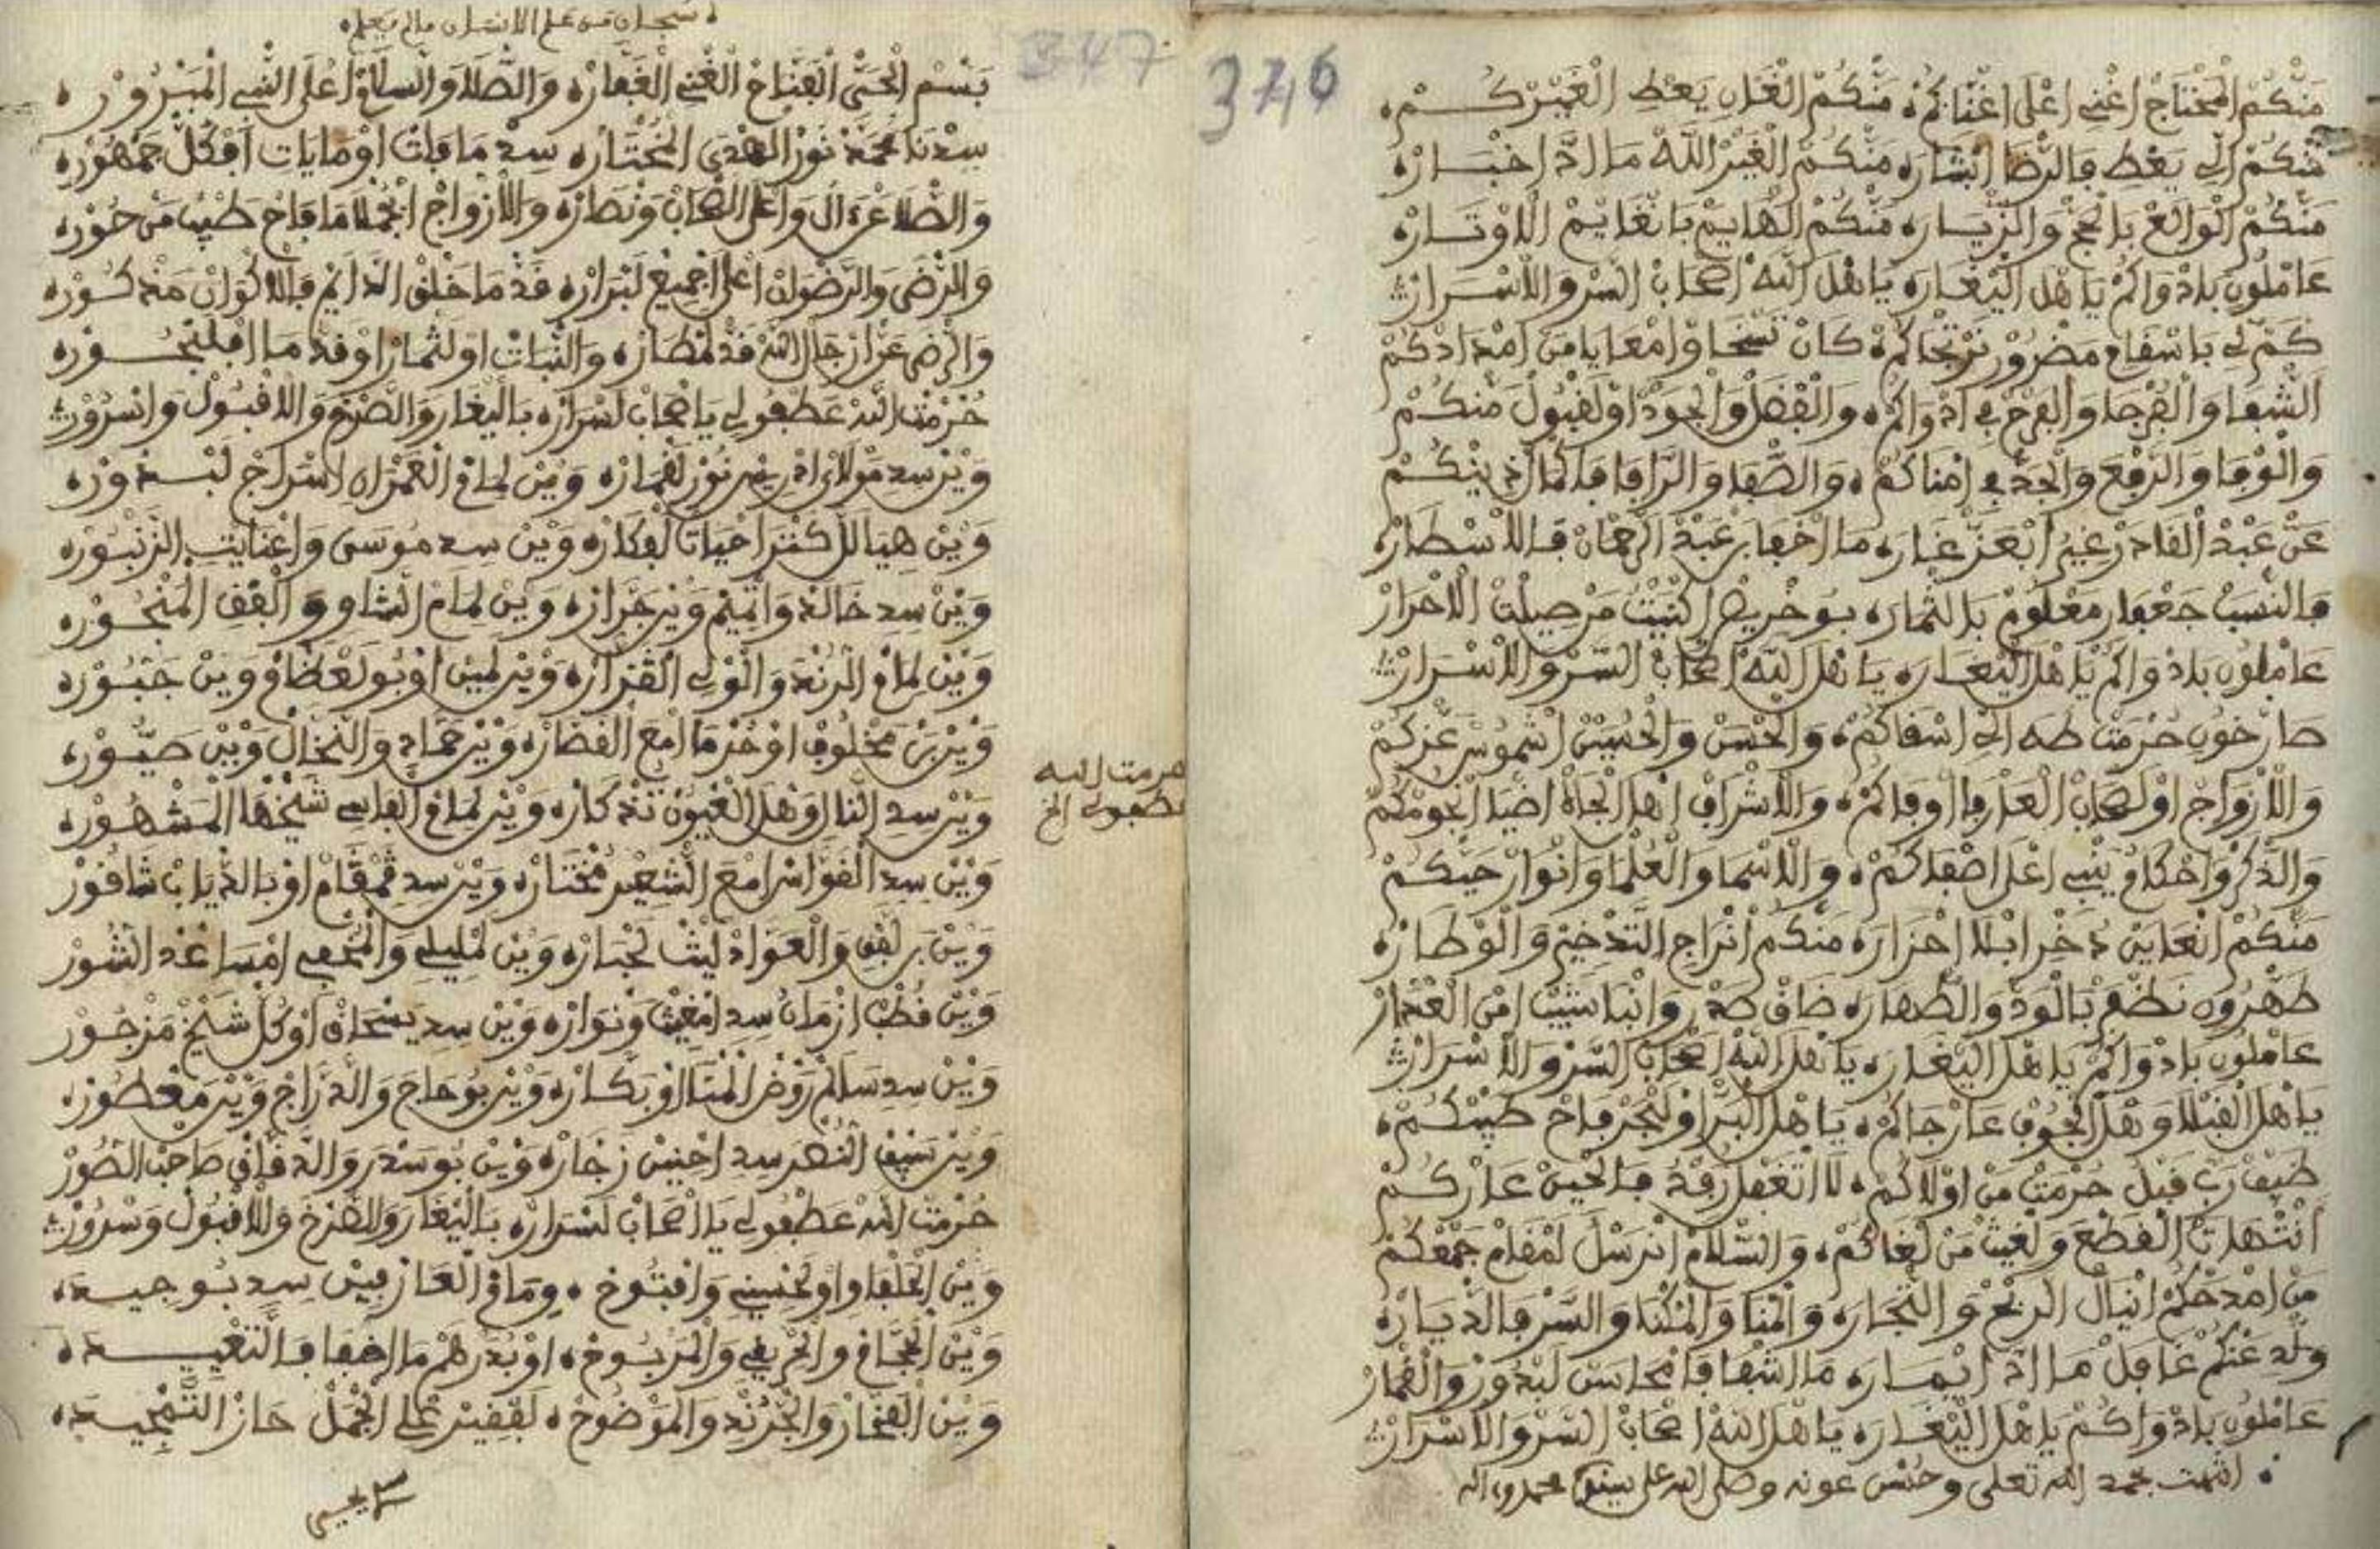 376
مَنْكُمْ الْمَحْتَاجْ اغْنِي اعْلَى اغْنَاكُمْ ه مَنْكُمْ الْغَانِ يَعْطِ الْغَيْرْكُمْ ه
مَنْكُمْ الِّي يَعْطِ بِالرْضَا ابْشَارَه مَنْكُمْ الْغَيْرْ اللَّهْ مَا ادَّ اخْبَارْه
مَنْكُمْ الْوَالَعْ بَالْحَجْ وَالزّْيَارَه مَنْكُمْ الْهَايَمْ بَانْغَايَمْ الَاوْتَارْه
عَامْلُونِ بَادْوَاكُمْ يَا هْلَ الْيَغَارَه يَا هْلَ اللَّهْ اصْحَابْ السَّرْ وَالَاسْرَارْ
كَمْ لِي بَاسْقَامِ مَضْرُورْ نَرْتْجَاكُمْ ه كَانْ نَسْخَا وَامْعَايَا مَنْ امْدَادْكُمْ
الشّْفَا وَالْفُرْجَا وَالْفَرْحْ فِي ادْوَاكُمْ ه وَالْفْضَلْ وَالْجُودْ اوْلَقْبُولْ مَنْكُمْ
وَالْوْفَا وَالرَّفْعْ وَالْجَدّْ فِي امْنَاكُمْ ه وَالصّْفَا وَالرَّافَا فَاكْمَالْ دِينْكُمْ
عَنْ عَبْدْ الْقَادَرْ غِيرْ ابْعَزّْ غَارَه مَا اخْفَا بَنْ عَبْدْ الرَّحْمَانْ فَالَاسْطَارْه
فَالنّْسَبْ جَعْفَارِ مَعْلُومْ بَالثّْمَارَه بُوخْرِيصْ اكْنِيتُ مَنْ صِيلْتْ الَاحْرَارْ
عَامْلُونِ بَادْوَاكُمْ يَا هْلَ الْيَغَارَه يَا هْلَ اللَّهْ اصْحَابْ السَّرْ وَالَاسْرَارْ
صَارْخُونِ حُرْمَتْ طَهَ الِّي اسْقَاكُمْ ه وَالْحْسَنْ وَالْحُسِينْ اشْمُوسْ عَزّْكُمْ
وَالَازْوَاجْ اوْلَصْحَابْ الْعَارْفَا اوْفَاكُمْ ه وَالَاشْرَافْ اهْلَ الْجَاهْ اضْيَا انْجُومْكُمْ
وَالذّْكَرْ وَاحْكَامْ يَنْبِي اعْلَى اصْفَاكُمْ ه وَالَاسْمَا وَالْعُلْمَا وَانْوَارْ حَيّْكُمْ
مَنْكُمْ انْعَايَنْ دُخْرِ ابْلَا احْزَارَه مَنْكُمْ انْرَاجِ التَّدْخِيرْ وَالْوْطَارْه
طَهّْرُونِ نَظْفَرْ بَالْوَدّْ وَالطّْهَارَه ضَاقْ صَدْرِ وَانْبَا شَيْبْ امْنْ الْعْذَارْ
عَامْلُونِ بَادْوَاكُمْ يَا هْلَ الْيَغَارَه يَا هْلَ اللَّهْ اصْحَابْ السَّرْ وَالَاسْرَارْ
يَا هْلَ الْقَبْلَا وَهْلَ الْجُوفْ عَارْ جَاكُمْ ه يَا هْلَ الْبَرّْ اوْلَبْحَرْ فَاحْ طَيْبْكُمْ ه
ضَيْفْ رَبِّ قَبْلْ حُرْمَتْ مَنْ اوْلَاكُمْ ه لَا اتَّغَفْلْ رَقْدْ فَالْحِينْ عَارْكُمْ
انْتْهَاتْ الْقَطْعَ وَلْغِيتْ مَنْ لْغَاكُمْ ه وَالسّْلَامْ انْرَسْلْ لَمْقَامْ جَمْعْكُمْ
مَنْ امْدَحْكُمْ انْيَالْ الرَّبْحْ وَالتّْجَارَه وَالْمْنَا وَالْمُكْنَه وَالسَّرْ فَالدّْيَارْه
وَلّدْ عَنْكُمْ غَافَلْ مَا ادَّ ايْمَارَه مَا اشْفَا فَامْحَاسَنْ لَبْدُورْ وَالْقْمَارْ
عَامْلُونِ بَادْوَاكُمْ يَا هْلَ الْيَغَارَه يَا هْلَ اللَّهْ اصْحَابْ السَّرْ وَالَاسْرَارْ
انتهت بحمد الله تعلى وحسن عونه وصلى الله على سيدنا محمد واله
347
سبحان من علم الانسان مالم يعلم ه
بَسْمْ الْحَيّْ الْفَتَّاحْ الْغْنِي الْغَفَّارْه وَالصّْلَا وَالسْلَامْ اعْلَى النّْبِي الْمَبْرُورْ ه
سِدْنَا مُحَمَّدْ نُورْ الْهْدَى الْمُخْتَارْه سِدْ مَا فَاتْ اوْمَا يَاتِ افْكُلّْ جَمْهُورْه
وَالصّْلَا عَزَّ الْ وَاعْلَى الصْحَابْ وَنْصَارْه وَالَازْوَاجْ ابْجُمْلَا مَا فَاحْ طَيْبْ مَنْ حُورْه
وَالرّْضَى وَالرّْضْوَانْ اعْلَى اجْمِيعْ لَبْرَارْه قَدّْ مَا خَلْقْ الدَّايَمْ فَالَاكْوَانْ مَذْكُورْه
وَالرْضِ عَزَّ ارْجَالْ اللَّهْ قَدّْ لَمْطَارْه وَالنّْبَاتْ اوْلَثْمَارْ اوْقَدّْ مَا افْلَبْحُورْه
حُرْمْتْ اللَّهْ عَطْفُولِي يَا اصْحَابْ لَسْرَارْه بَالْيْغَارْ وَالصَّرْخَ وَالَاقْبُولْ وَاسْرُورْ
وَيْنْ سِدِ مَوْلَايْ ادْرِيسْ نُورْ لَقْمَارْه وَيْنْ لِمَامْ الْعَمْرَانِ اسْرَاجْ لَبْدُورْه
وَيْنْ هِيَا لَالّ كَنْزَ احْيَاتْ لَفْكَارْه وَيْنْ سِدِ مُوسَى وَاعْنَايْتِ الزَّنْبُورْه
وَيْنْ سِدِ خَالَدْ وَاتْمِيمْ وَيْنْ جَرَّارْه وَيْنْ لِمَامْ الشَّاوِ وَالْقْفِفِ الْمَنْجُورْه
وَيْنْ لِمَامْ الرُّنْدَ وَالْوْلِي الْقَزَّارْه وَيْنْ لَمِينْ اوْبُولَعْظَامْ وَيْنْ جَبُورْه
وَيْنْ بَنْ مَخْلُوفْ اوْخَزْمَا امْعَ الْقَصَّارْه وَيْنْ حَمَّادِ وَالنّْخَالْ وَيْنْ صَيُّورْه
وَيْنْ سِدِ النَّالِ اوَهْلَ الْعْيُونْ تَذْكَارْه وَيْنْ لِمَامْ الْفَاسِي شَيْخْهَا الْمَشْهُورْه
وَيْنْ سِدِ الْغَوَّاسْ امْعَ الشْعِيرْ مُخْتَارْه وَيْنْ سِدِ قَمْقَامْ اوْبَالذّْيَابْ شَاقُورْ
وَيْنْ بَلْفْقِ وَالْعَوَّادْ لَيْثْ لَخْبَارْه وَيْنْ لَمْلِيلِي وَالْمُخْفِي امْسَاعْدْ الشُّورْ
وَيْنْ قُطْبْ ازْمَانُ سِدِ امْغِيثْ وَنْوَارْه وَيْنْ سِدِ يَسْحَاقْ اوْكُلّْ شَيْخْ مَزْجُورْ
وَيْنْ سِدِ سَالَمْ رَوْضْ الْمْتَالْ وَبْكَارْه وَيْنْ بُوحَاجَ وَالدَّرَّاجْ وَيْنْ مَعْطُورْه
وَيْنْ سَيْفْ النّْصَرْ سِدِ احْنِينْ زَخَّارْه وَيْنْ بُوسَدْرَ وَالدَّقَّاقْ صَاحَبْ الصُّورْ
حُرْمْتْ اللَّهْ عَطْفُولِي يَا اصْحَابْ لَسْرَارْه بَالْيْغَارْ وَالصَّرْخَ وَالَاقْبُولْ وَسْرُورْ
وَيْنْ الْخُلْفَاوِ اوْلَحْسِينِي وَافْتُوخْ ه وِمَامْ الْعَارْفِينْ سِدِ بُوجِيدَه ه
وَيْنْ الْحَجَّامْ وَالْحْرِيفِي وَالْمَرْبُوخْ ه اوْبُدَرْهَمْ مَا اخْفَا فَالتَّغْيِيدَه ه
وَيْنْ الْفَخَّارْ وَالْجُرُنْدِ وَالْمَوْضُوخْ ه لَفْقِيرْ عْلِي الْجْمَلْ حَازْ التَّمْجِيدَه ه
حرمت الله
عطفولي الخ